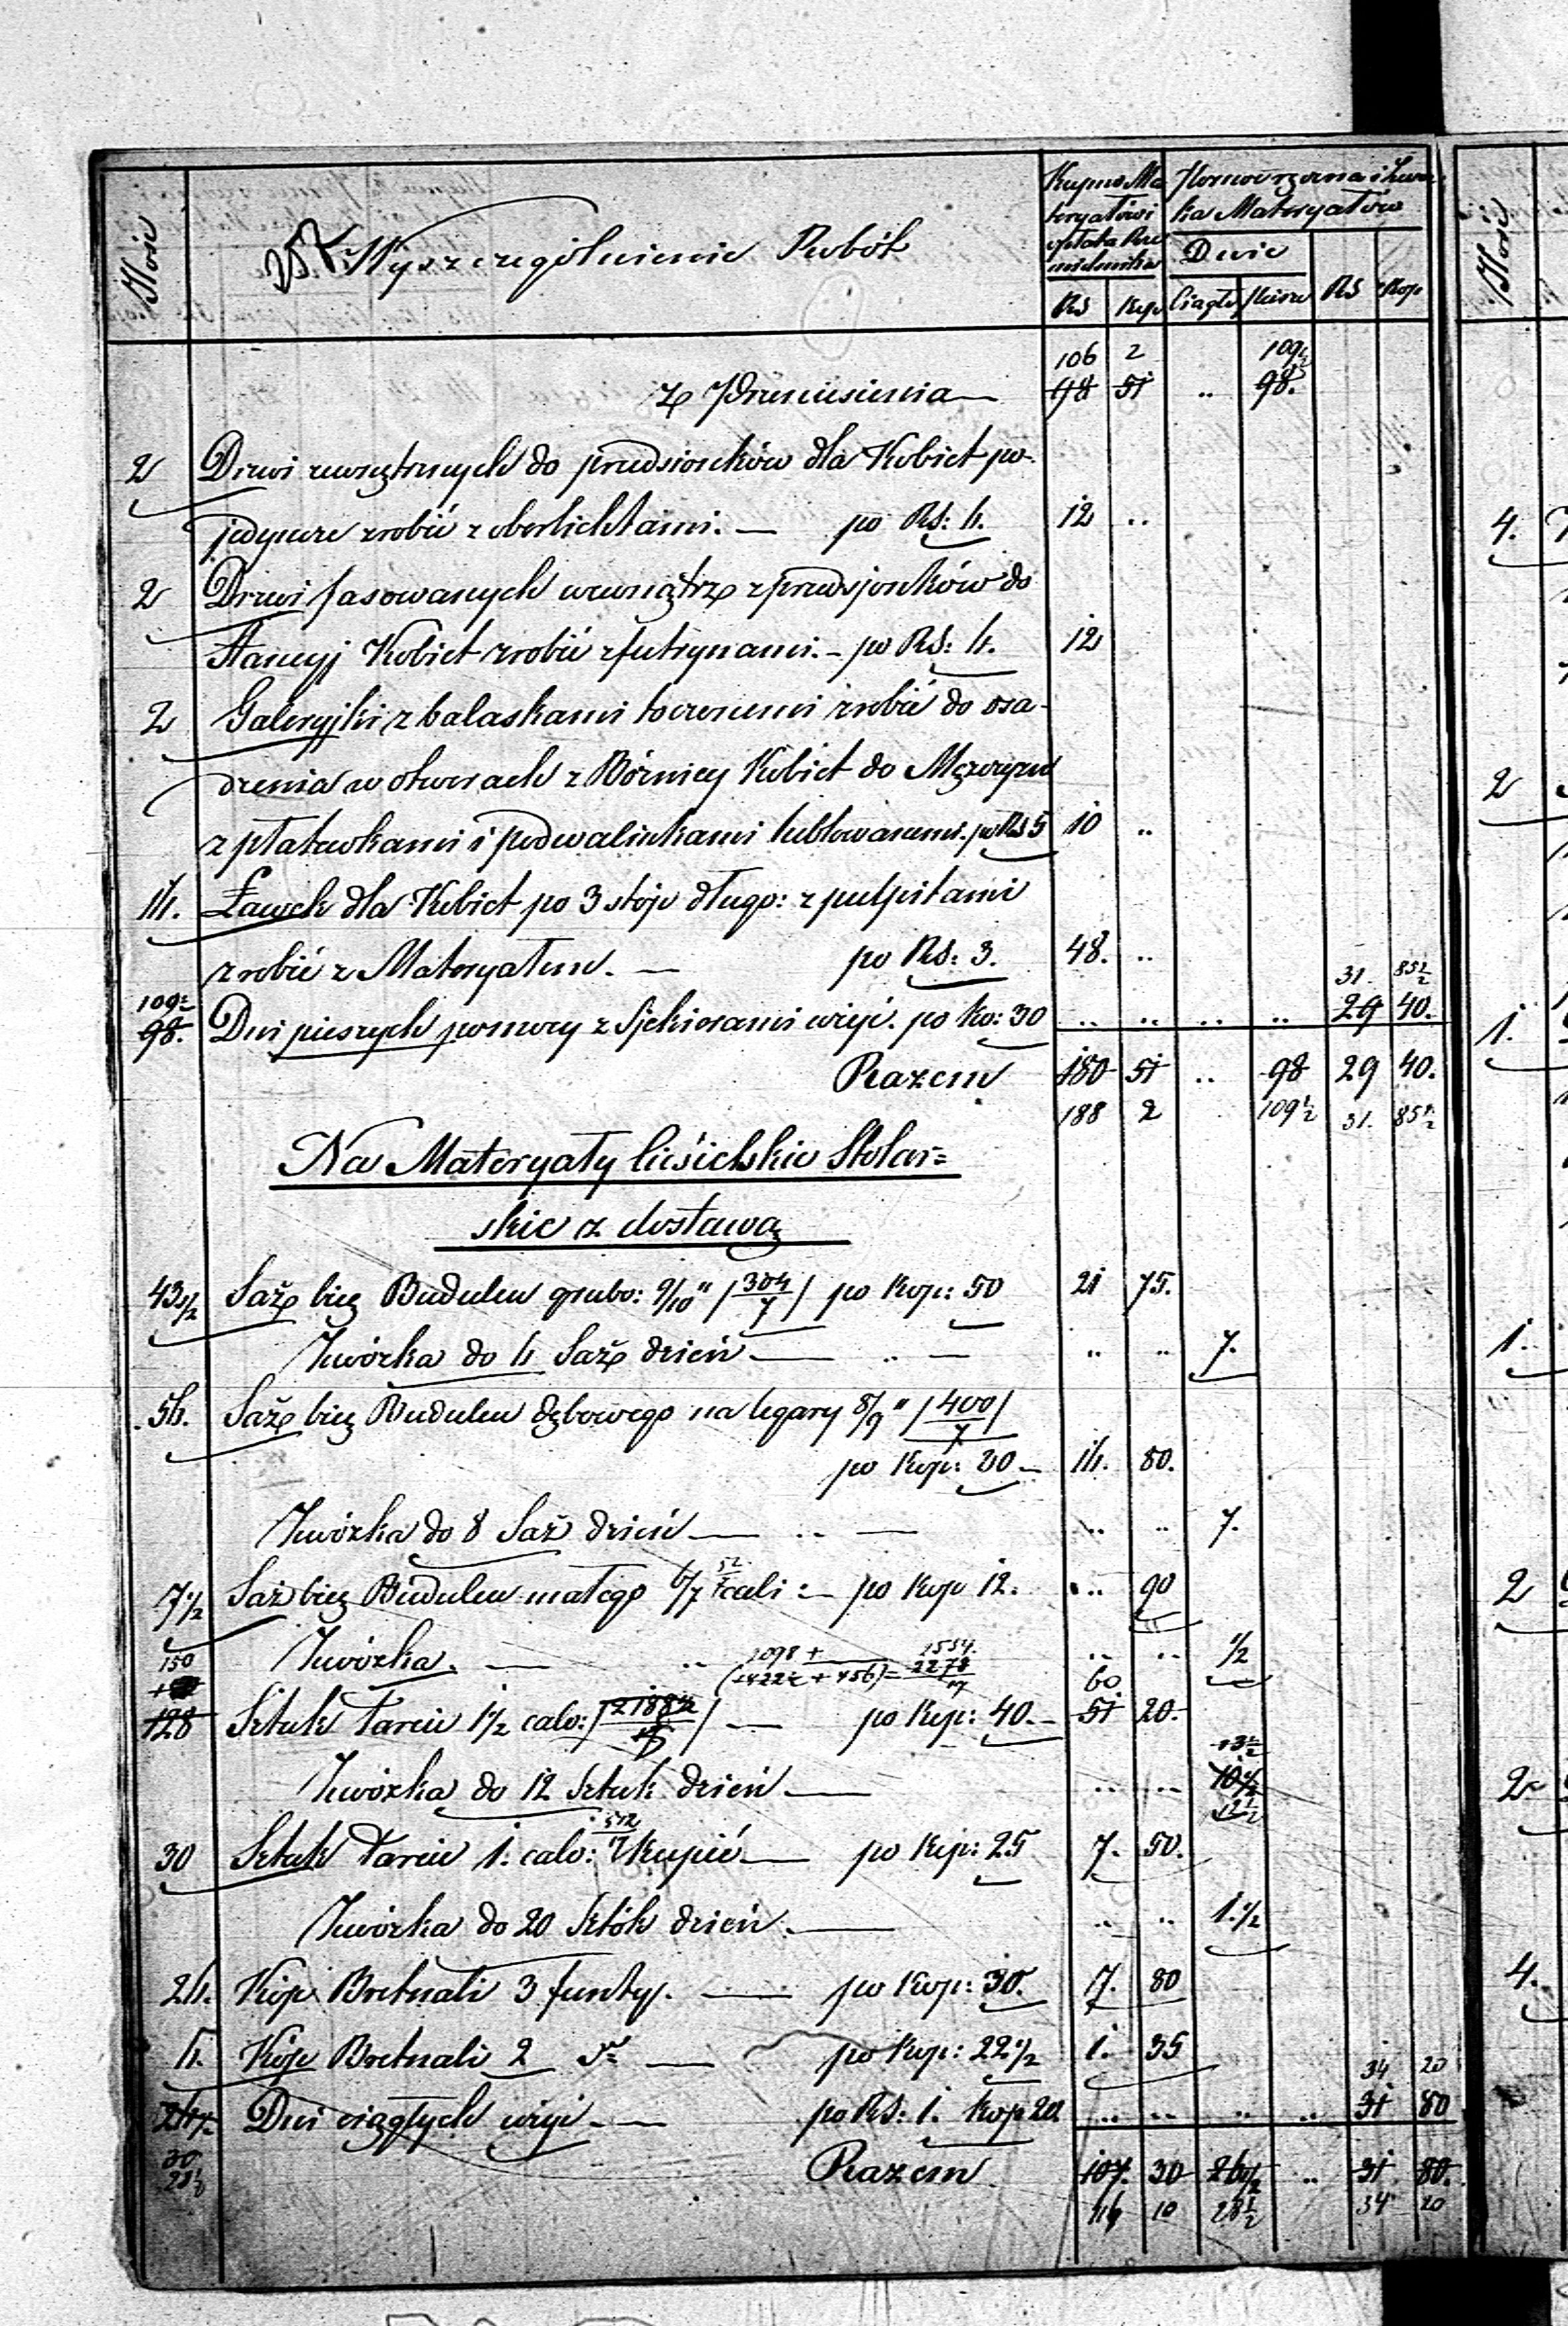 Ilość
Wyszczególnienie Robót
Kupno Ma
teryałów i
opłata Rze
mieślnika
Pomoc ręczna i Zwóz
ka Materyałów
Dnie
RS Kop Ciągłe Piesze RS Kop
106 2 109½
z Przeniesienia — 98 51 .. 98.
2 Drzwi zewnętrznych do przedsionków dla Kobiet po-
jedyncze zrobić z oberlichtami. — po RS: 6. 12 ..
2 Drzwi fasowanych wewnątrz z przedsjonków do
Stancyj Kobiet zrobić z futrynami. — po RS: 6. 12
2 Galeryjki z balaskami toczonemi zrobić do osa-
dzenia w otworach z Bóżnicy Kobiet do Mężczyzn
z płatewkami i podwalinkami heblowanemi. po RS 5 10 ..
16. Ławek dla Kobiet po 3 stóp długo: z pulpitami
zrobić z Materyałem. — po RS: 3. 48. ..
109½ 31. 85½
98. Dni pieszych pomocy z Sjekierami wzjęć. po Ko: 30 .. .. .. .. 29 40.
Razem 180 51 .. 98 29 40.
188 2 109½ 31. 85½
Na Materyały Ciesielskie Stolar=
skie z dostawą
43½ Saż bieg Budulcu grubo: 9/10" /304/7/ po Kop: 50 21 75.
Zwózka do 6 Saż dzień — .. — .. .. 7.
56. Saż bieg Budulcu dębowego na legary 8/9" /400/7/
po Kop: 20 — 16. 80.
Zwózka do 8 Saż dzień — .. — .. .. 7.
7½ Saż bieg Budulcu małego 6/7 52/7 cali: — po Kop 12. .. 90
Zwózka. — .. .. .. ½
150 1098 + 1554
2278 60
128 Sztuk Tarcic 1½ calo: — po Kop: 40. — 51 20.
13½
Zwózka do 12 Sztuk dzień — .. .. 10½
12½
30 Sztuk Tarcic 1. calo: 512/7 kupić — po Kop: 25 7. 50.
Zwózka do 20 Sztók dzień. — .. .. 1.½
26. Kóp Bretnali 3 funty. — po Kop: 30. 7. 80
6. Kóp Bretnali 2 — po Kop: 22½ 1. 35
34 20
26½ Dni ciągłych wzjęć — po RS: 1. Kop 20 .. .. .. .. 31 80
30
28½
Razem 107. 30 26½ .. 31. 80.
116 10 28½ 34 20
Ilość
4.
2
1.
1.
2
2
4.